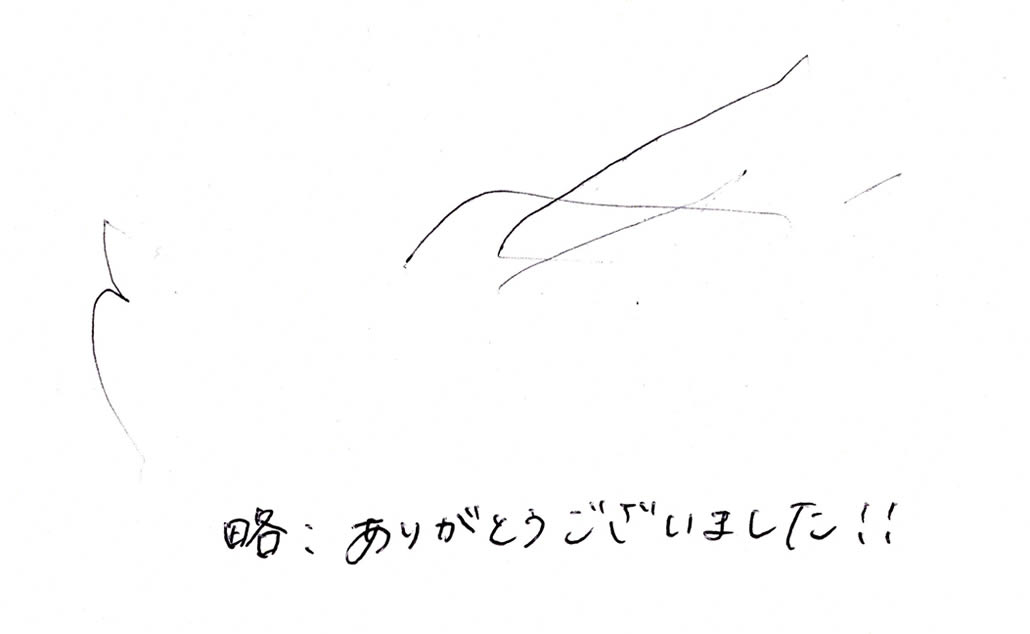 略：ありがとうございました!!